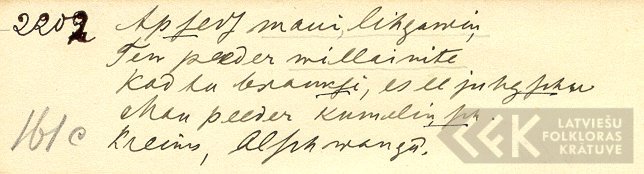 2202 Apsedj mani, lihgawin,
Tew peeder willainite
Kad tu brauksi, es eejuhgschu
Man peeder kumelinsch.
161c Kreews, Alschwangu.
LATVIEŠU
FOLKLORAS
KRĀTUVE